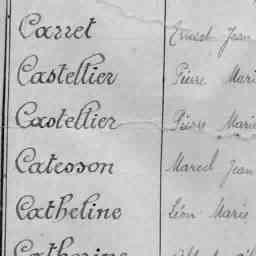 Carret Ernest Jean
Castellier Pierre Mari
Castellier Pierre Marie
Catesson Marcel Jean
Catheline Léon Marie
Catherine